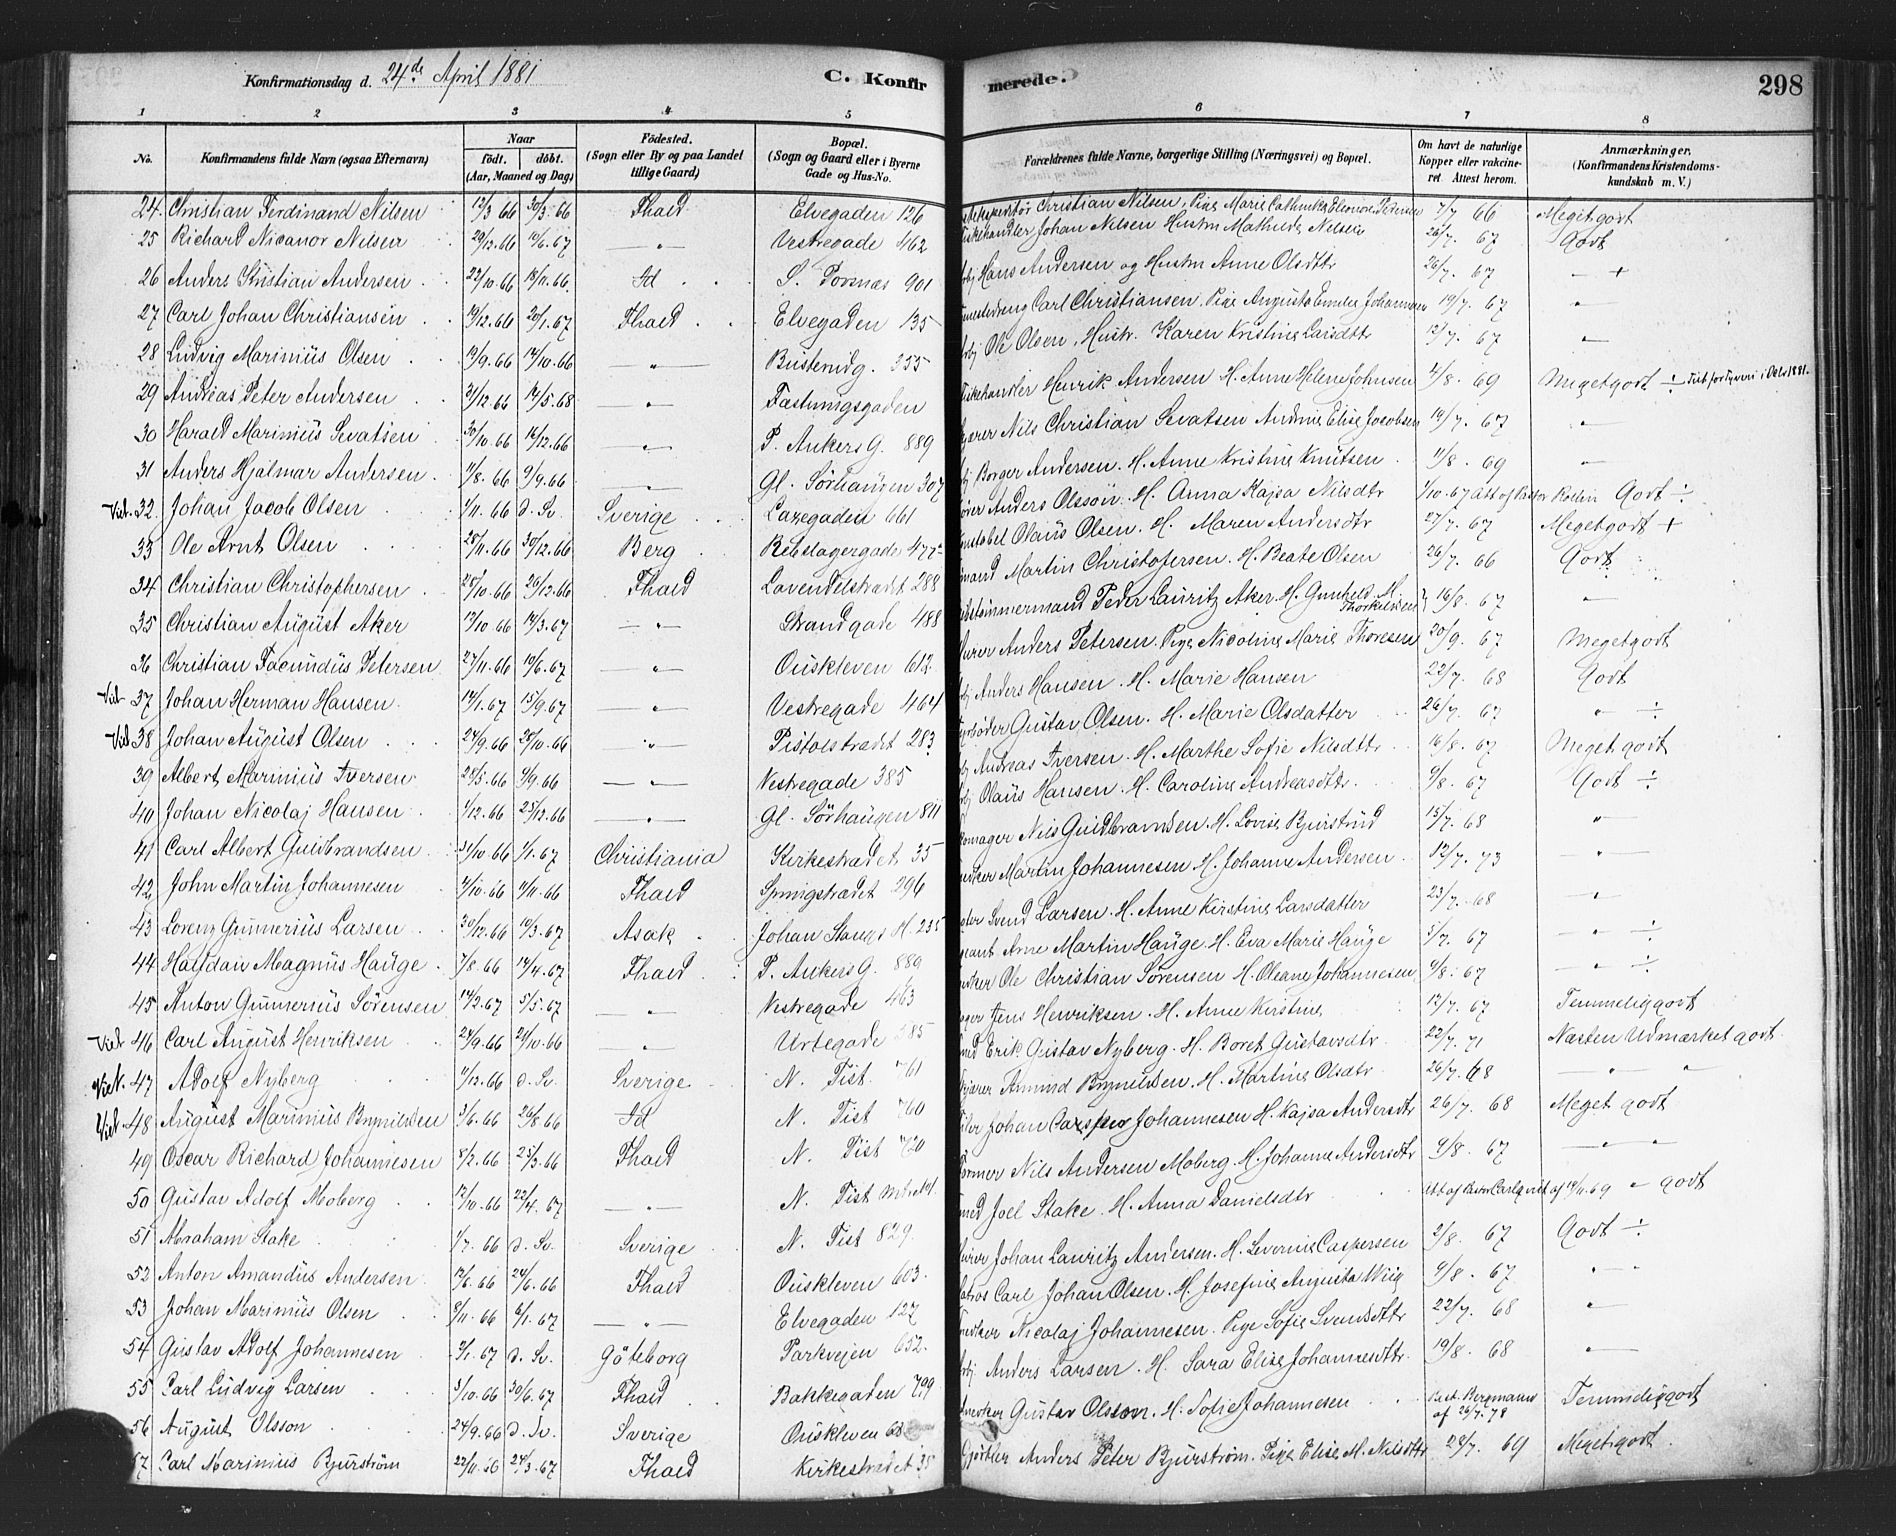 Konfirmationsdag d. 24de April 1881
C. Konfirmerede.
298
1 2 3 4 5 6 7 8
No. Konfirmandens fulde Navn (ogsaa Efternavn) Naar født. døbt. (Aar, Maaned og Dag) Fødested. (Sogn eller By og paa Landet tillige Gaard) Bopæl. (Sogn og Gaard eller i Byerne Gade og Hus-No. Forældrenes fulde Navne, borgerlige Stilling (Næringsvei) og Bopæl. Om havt de naturlige Kopper eller vakcineret Attest herom. Anmærkninger. (Konfirmandens Kristendomskundskab m. V.)
24. Christian Ferdinand Nilsen 12/3 66 30/3. 66 Fhald Elvegaden 126 Christian Nilsen, Pige Marie Cathrinke Eleonore Petersen 7/7 66 Meget godt
25 Richard Nicanor Nilsen 29/12.66 10/6.67 — " — Vestregade 462 Fiskehandler Johan Nilsen Hustru Mathilde Nilsen 26/7. 67 Godt
26 Anders Kristian Andersen 22/10.66 18/11.66. Id S. Porsnæs 901 Hans Andersen og Hustru Anne Olsdttr 26/7. 67 — +
27 Carl Johan Christiansen 19/12.66 20/1.67 Fhald Elvegaden 135 Carl Christiansen. Pige Augusta Emelie Johannesen 19/7. 67 "
28 Ludvig Marinius Olsen 19/9.66 14/10.66 — " — Busterudg. 355 Ole Olsen, Hustr. Karen Kristine Larsdttr 12/7. 67 "
29 Andreas Peter Andersen 31/12.66 14/5.68 " Fæstningsgaden Fiskehandler Henrik Andersen H. Anne Helene Johnsen 4/8. 69 Megetgodt ÷
30 Harald Marinius Sevatsen 30/10.66 16/12.66 " P. Ankers G. 889 Nils Christian Sevatsen Andrine Elise Jacobsen 19/7. 67 "
31 Anders Hjalmar Andersen 11/8.66 9/9.66 " Gl. Sørhaugen 307 Borger Andersen. H. Anne Kristine Knutsen 11/8. 69 "
Vid. 32. Johan Jacob Olsen 1/11.66 d. Sv. Sverige Lærgaden 661 Anders Olsson. H. Anna Kajsa Nilsdtr 1/10.67 Att af Pastor Godt ÷
33 Ole Arnt Olsen 28/11.66 30/12.66 Berg Rebslagergade 477 Olaus Olsen. H. Maren Andersdtr 27/7. 67 Megetgodt +
34 Christian Christophersen 28/10.66 26/12.66 Fhald Lavendelstrædt 288 Martin Christofersen. H. Beate Olsen 26/7. 66 Godt
35 Christian August Aker 17/10.66 14/3.67 — " — Strandgade 488 Peder Lauritz Aker H. Gunhild M. Thorkildsen 16/8. 67 "
36 Christian Facundus Petersen 27/11.66 10/6.67 — " — Ouskleven 612 Anders Petersen. Pige Nicoline Marie Thoresen 20/9. 67 Megetgodt
Vid 37 Johan Herman Hansen 14/1.67 15/9.67 — " — Vestregade 464 Anders Hansen. H. Marie Hansen 22/7. 68 Godt
Vid 38 Johan August Olsen 24/9.66 28/10.66 " Pistolstrædt 283. Gustav Olsen. H. Marie Olsdatter 26/7. 67 " ÷
39 Albert Marinius Iversen 28/5.66 9/9.66 — " — Vestregade 385 Andreas Iversen. H. Marthe Sofie Nilsdttr 16/8. 67 Meget godt
40 Johan Nicolaj Hansen 1/12.66 25/12.66 " Gl. Sørhaugen 811 Olaus Hansen. H. Caroline Andreasdttr. 9/8. 67 Godt ÷
41 Carl Albert Guldbrandsen 31/10.66 1/1.67 Christiania Kirkestrædet 35 Nils Guldbrandsen. H. Lovise Bjurstrud 15/7. 68 "
42 John Martin Johannesen 4/10.66 4/11.66 Fhald Springstrædet 296 Martin Johannesen H. Johanne Andersen 12/7. 73 "
43 Lorenz Gunnerius Larsen 30/12.66 10/3.67 Asak Johan Stangs H. 235 Svend Larsen. H. Anne Kirstine Larsdatter 23/7. 68 "
44 Haldan Magnus Hauge 7/8.66 14/4.67 Fhald P. Ankers G. 889 Arne Martin Hauge. H. Eva Marie Hauge 5/7. 67 " ÷
45 Anton Gunnerius Sørensen 14/2.67 5/5.67 — " — Vestregade 463 Ole Christian Sørensen H. Oleane Johannesen 9/8. 67 " ÷
Vid 46 Carl August Henriksen 24/9.66 21/10.66 " Urtegade 585 Jens Henriksen. H. Anne Kirstine 12/7. 67 Temmeliggodt
Vid. 47 Adolf Nyberg 11/12.66 d. Sv. Sverige N. Tist. 761 Erik Gustav Nyberg. H. Boret Gustavsdtr 22/7. 71 Næsten Udmærket godt.
Vid. 48 August Marinius Brynildsen 3/6.66 26/8.66 Id N. Tist 760 Amund Brynildsen. H. Martine Olsdtr 26/7. 68 " " "
49 Oscar Richard Johannesen 8/2.66 25/3.66 Fhald N. Tist 720 Johan Casper Johannesen H. Kajsa Andersdtr 26/7. 68 Meget godt
50 Gustav Adolf Moberg 12/10.66 22/4.67 — " — N. Tist Nils Andersen Moberg. H. Johanne Andersdtr 9/8. 67 — " —
51 Abraham Stake 1/7.66 d. Sv. Sverige N. Tist 829 Joel Stake. H. Anna Danielsdtr Att af Pastor Carlqvist af 14/11.69 " godt
52 Anton Amandus Andersen 12/6.66 24/6.66 Fhald Ouskleven 603. Johan Lauritz Andersen. H. Severine Caspersen 2/8. 67 Godt ÷
53 Johan Marinius Olsen 9/11.66 6/1.67 — " — Elvegaden 127 Carl Johan Olsen. H. Josefine Augusta Wiig 9/8. 67 " "
54 Gustav Adolf Johannesen 3/1.67 d. Sv. Göteborg Parkvejen 652. Nicolaj Johannesen. Pige Sofie Svensdttr 22/7. 68 "
55 Carl Ludvig Larsen 3/10.66 30/6.67 Fhald Bakkegaden 799 Anders Larsen. H. Sara Elise Johannesdttr. 19/8. 68 "
56 August Olsson 24/9.66 d. Sv. Sverige Ouskleven Gustav Olsson. H. Sofie Johannesen Past. Bergmann af 26/7.78 Temmeliggodt
57 Carl Marinius Bjurström 22/11.66 24/3.67 Fhald Kirkestrædet 35 Anders Peter Bjurström. Pige Elise M. Nilsdttr 28/7. 69 Megetgodt.